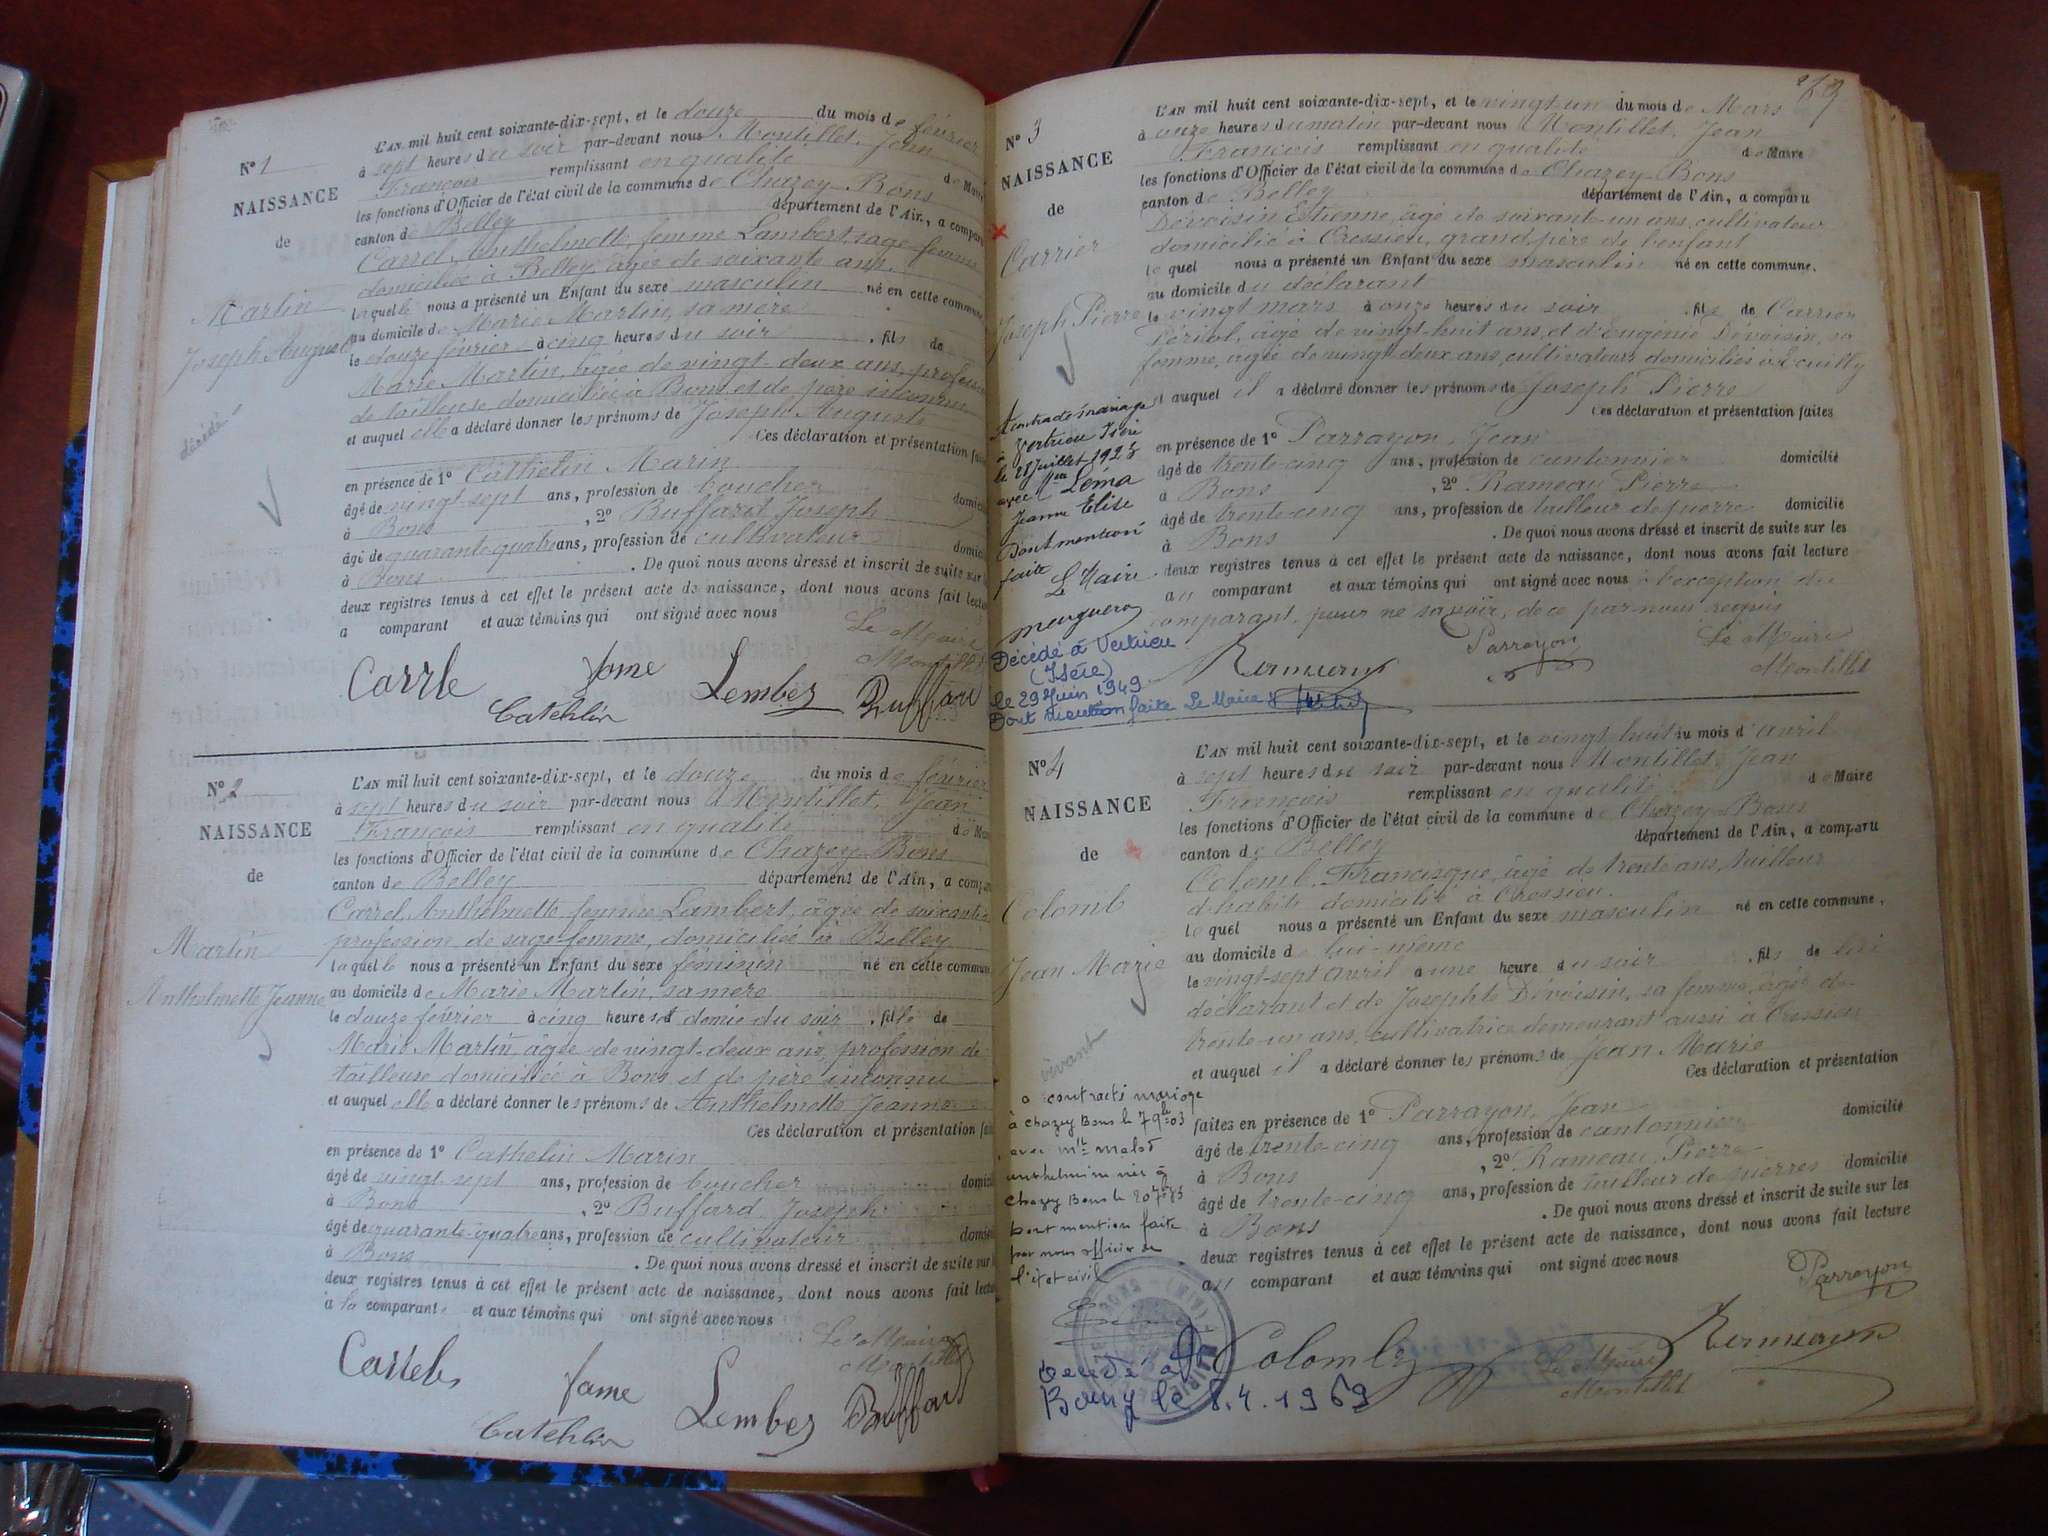 N° 1
NAISSANCE
de
Martin
Joseph Auguste
décédé
L'AN mil huit cent soixante-dix-sept, et le douze du mois de février
à sept heures du soir par-devant nous Montillet, Jean
François remplissant en qualité de Maire
les fonctions d'Officier de l'état civil de la commune de Chazey-Bons
canton de Belley département de l'Ain, a comparu
Carrel Anthelmette femme Lambert, sage-femme
domiciliée à Belley, âgée de soixante ans,
laquelle nous a présenté un Enfant du sexe masculin né en cette commune
au domicile de Marie Martin, sa mère
le douze février à cinq heures du soir, fils de
Marie Martin, âgée de vingt-deux ans, profession
de tailleuse domiciliée à Bons et de père inconnu
et auquel elle a déclaré donner les prénoms de Joseph Auguste
Ces déclaration et présentation fai
en présence de 1° Cathelin Marin
âgé de vingt-sept ans, profession de boucher domici
à Bons, 2° Buffard Joseph
âgé de quarante-quatre ans, profession de cultivateur domici
à Bons. De quoi nous avons dressé et inscrit de suite sur l
deux registres tenus à cet effet le présent acte de naissance, dont nous avons fait lectu
a comparant et aux témoins qui ont signé avec nous
Le Maire
Montillet
Carrle fame Lember Buffard
Catehlin
N° 2
NAISSANCE
de
Martin
Anthelmette Jeanne
L'AN mil huit cent soixante-dix-sept, et le douze du mois de février
à sept heures du soir par-devant nous Montillet, Jean
François remplissant en qualité de Mai
les fonctions d'Officier de l'état civil de la commune de Chazey-Bons
canton de Belley département de l'Ain, a compa
Carrel Anthelmette femme Lambert, âgée de soixante
profession de sage-femme, domiciliée à Belley
laquelle nous a présenté un Enfant du sexe féminin né en cette commune
au domicile de Marie Martin, sa mère
le douze février à cinq heures et demie du soir, fille de
Marie Martin, âgée de vingt-deux ans, profession de
tailleuse domiciliée à Bons et de père inconnu
et auquel elle a déclaré donner les prénoms de Anthelmette Jeanne
Ces déclaration et présentation fai
en présence de 1° Cathelin Marin
âgé de vingt-sept ans, profession de boucher domici
à Bons, 2° Buffard Joseph
âgé de quarante-quatre ans, profession de cultivateur domici
à Bons. De quoi nous avons dressé et inscrit de suite sur l
deux registres tenus à cet effet le présent acte de naissance, dont nous avons fait lectu
à la comparante et aux témoins qui ont signé avec nous
Le Maire
Montillet
Carreles fame Lember Buffard
Catehlin
269
N° 3
NAISSANCE
de
Carrier
Joseph Pierre
A contracté mariage
à Vertrieu Isère
le 28 Juillet 1923
avec Léma
Jeanne Elise
Dont mention
faite
Le Maire
Décédé à Vertrieu
(Isère)
le 29 Juin 1949
Dont mention faite Le Maire
L'AN mil huit cent soixante-dix-sept, et le vingt-un du mois de Mars
à onze heures du matin par-devant nous Montillet, Jean
François remplissant en qualité de Maire
les fonctions d'Officier de l'état civil de la commune de Chazey-Bons
canton de Belley département de l'Ain, a comparu
Dévoisin Etienne, âgé de soixante-un ans, cultivateur
domicilié à Cressieu, grand-père de l'enfant
lequel nous a présenté un Enfant du sexe masculin né en cette commune.
au domicile du déclarant
le vingt mars à onze heures du soir, fils de Carrier
âgé de vingt-huit ans, et d'Eugénie Dévoisin, sa
femme, âgée de vingt-deux ans, cultivateurs domiciliés à Ecuilly
et auquel il a déclaré donner les prénoms de Joseph Pierre
Ces déclaration et présentation faites
en présence de 1° Parrayon, Jean
âgé de trente-cinq ans, profession de cantonnier domicilié
à Bons, 2° Rameau Pierre
âgé de trente-cinq ans, profession de tailleur de pierre domicilié
à Bons. De quoi nous avons dressé et inscrit de suite sur les
deux registres tenus à cet effet le présent acte de naissance, dont nous avons fait lecture
au comparant et aux témoins qui ont signé avec nous à l'exception du
comparant, pour ne savoir, de ce par nous requis
Parrayon Le Maire
Montillet
N° 4
NAISSANCE
de
Colomb
Jean Marie
vivant
a contracté mariage
à Chazey Bons le 7 9bre 03
avec Mlle
née à
Chazey Bons le
Dont mention faite
par nous officier de
l'état civil
Décédé à
Bourg le 8.4.1969
L'AN mil huit cent soixante-dix-sept, et le vingt-huit du mois d'avril
à sept heures du soir par-devant nous Montillet, Jean
François remplissant en qualité de Maire
les fonctions d'Officier de l'état civil de la commune de Chazey-Bons
canton de Belley département de l'Ain, a comparu
Colomb, Francisque, âgé de trente ans, tailleur
d'habits domicilié à Cressieu.
lequel nous a présenté un Enfant du sexe masculin né en cette commune,
au domicile de lui-même
le vingt-sept avril à une heure du soir, fils de lui
déclarant et de Josephte Dévoisin, sa femme, âgée de
trente-un ans, cultivatrice demeurant aussi à Cressieu
et auquel il a déclaré donner les prénoms de Jean Marie
Ces déclaration et présentation
faites en présence de 1° Parrayon, Jean
âgé de trente-cinq ans, profession de cantonnier domicilié
à Bons, 2° Rameau, Pierre
âgé de trente-cinq ans, profession de tailleur de pierres domicilié
à Bons. De quoi nous avons dressé et inscrit de suite sur les
deux registres tenus à cet effet le présent acte de naissance, dont nous avons fait lecture
au comparant et aux témoins qui ont signé avec nous
Parrayon
Colomb
Le Maire
Montillet